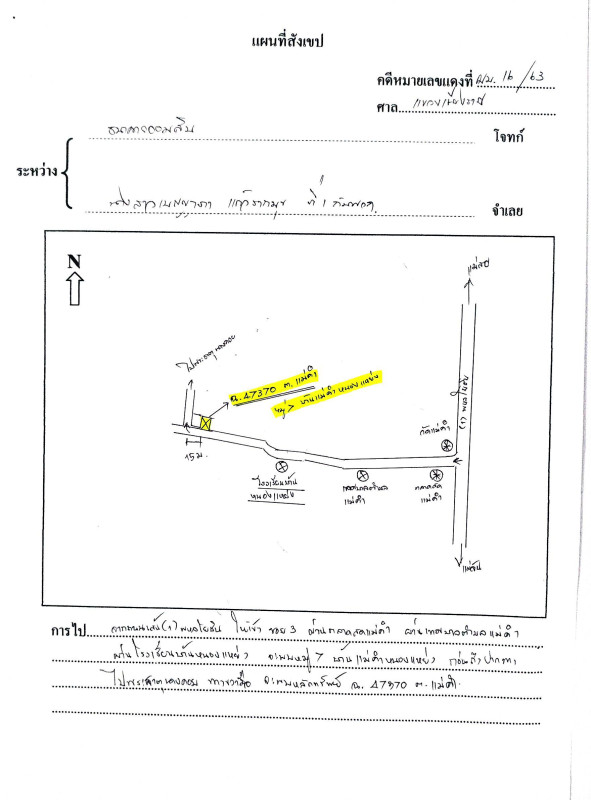 แผนที่สังเขป
คดีหมายเลขแดงที่ ผบ. 16 / 63
ศาล
ธนาคารออมสิน
โจทก์
ระหว่าง
ที่ 1 กับพวก
จำเลย
N
แม่สาย
ฉ. 47370 ต. แม่คำ
หมู่ 7 บ้านแม่คำหนองแหย่ง
(1) พหลโยธิน
วัดแม่คำ
15 ม.
โรงเรียนบ้าน
หนองแหย่ง
เทศบาลตำบล
แม่คำ
ตลาดสด
แม่คำ
แม่จัน
การไป จากถนนเส้น (1) พหลโยธิน ให้เข้า ซอย 3 ผ่านตลาดสดแม่คำ ผ่านเทศบาลตำบลแม่คำ
ผ่านโรงเรียนบ้านหนองแหย่ง จะพบหมู่ 7 บ้านแม่คำหนองแหย่ง ก่อนถึงปากทาง
ไปพระธาตุ ทางขวามือ จะพบหลักทรัพย์ ฉ. 47370 ต. แม่คำ